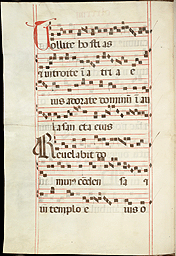 Tollite hostias
et introite i a tri a e
ius adorate dominum i au
la san cta eius
Reuelabit do
minus conden sa et
in templo e ius o